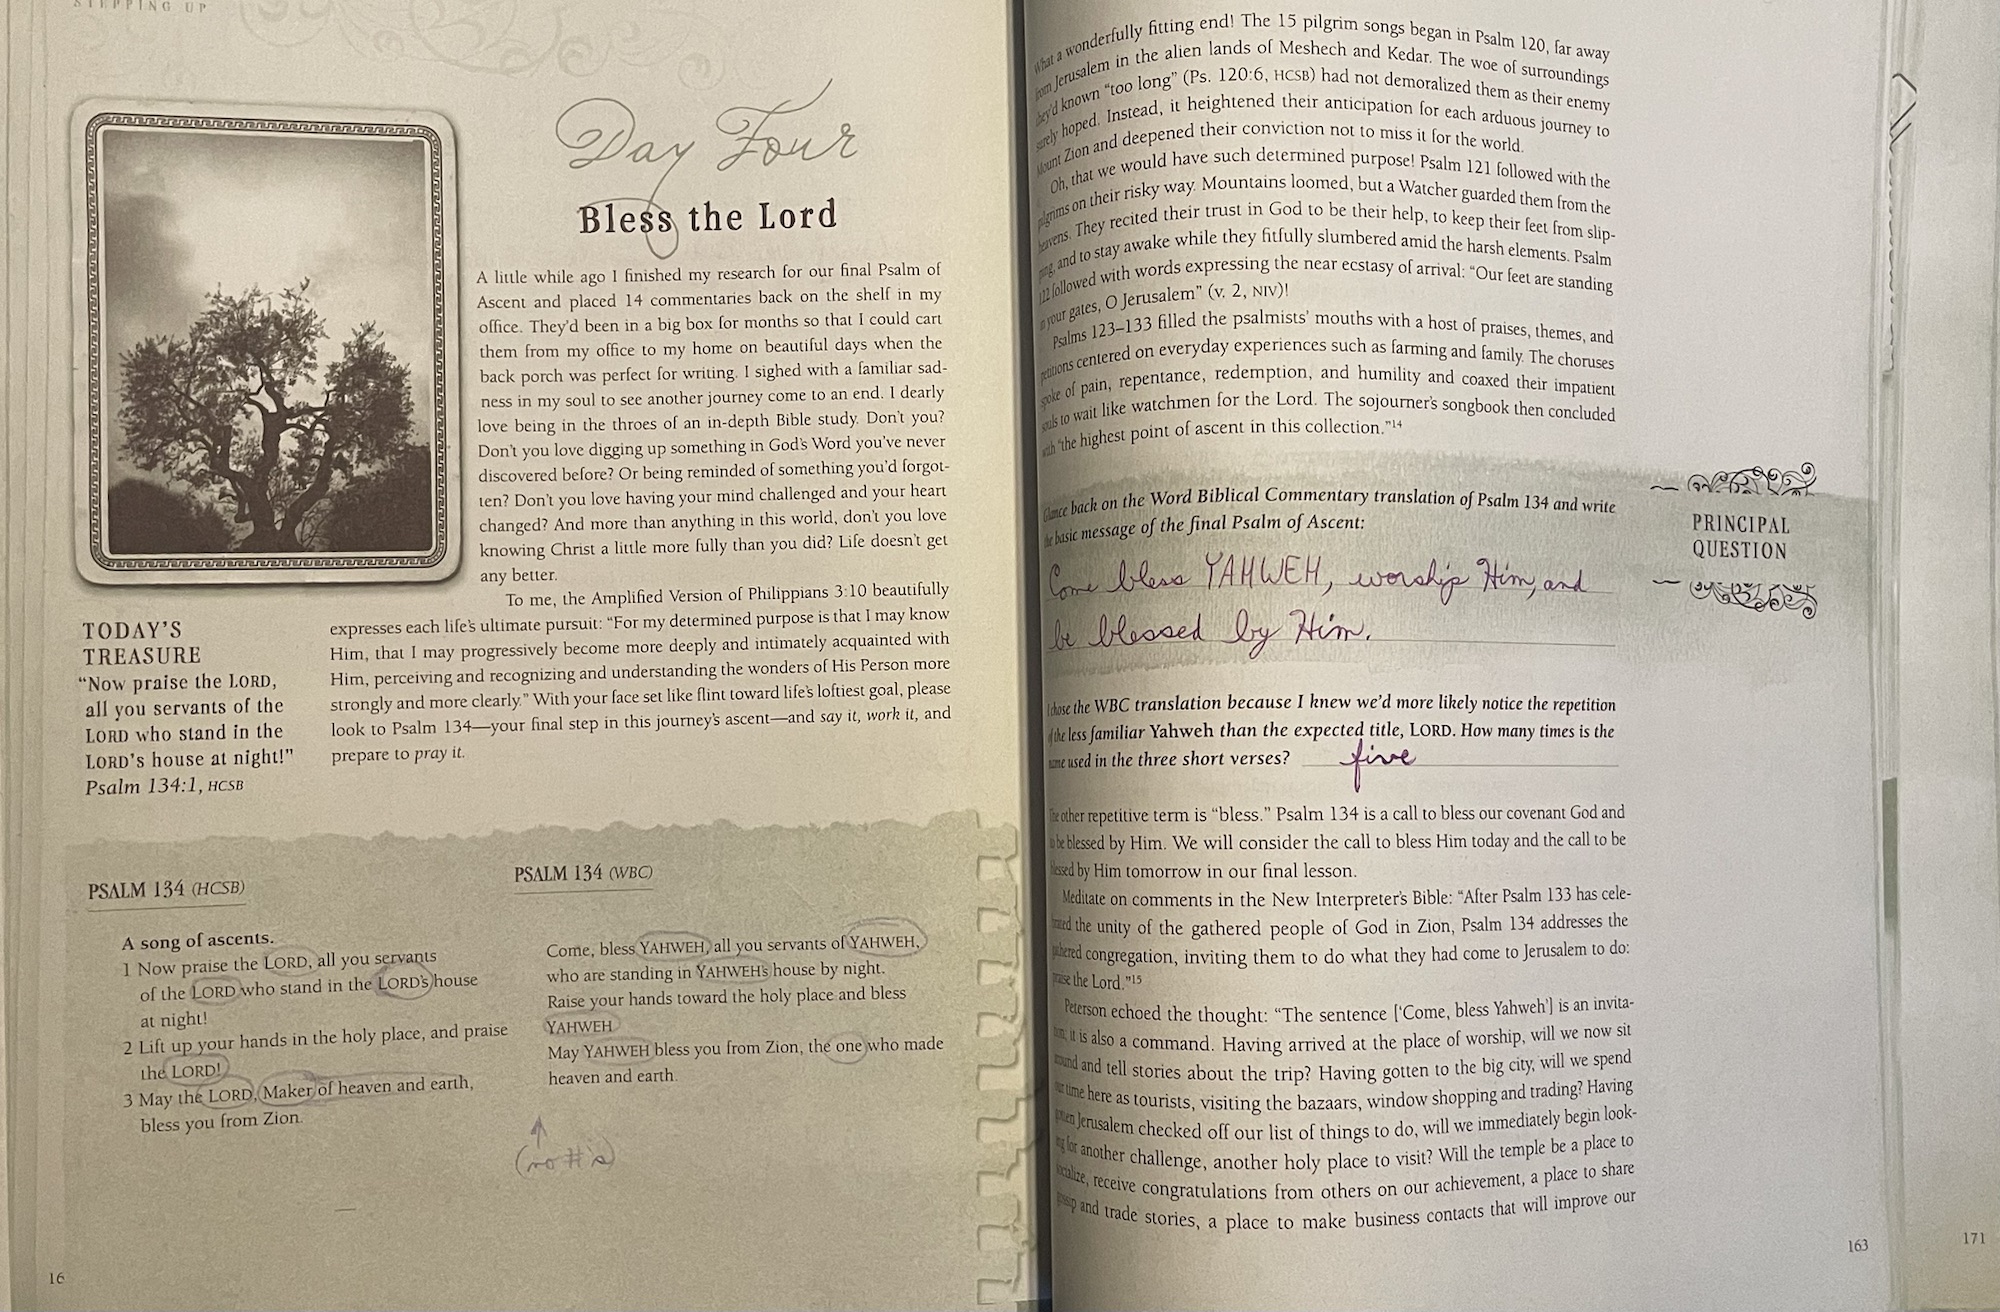 STEPPING UP
Day Four
Bless the Lord
A little while ago I finished my research for our final Psalm of
Ascent and placed 14 commentaries back on the shelf in my
office. They'd been in a big box for months so that I could cart
them from my office to my home on beautiful days when the
back porch was perfect for writing. I sighed with a familiar sad-
ness in my soul to see another journey come to an end. I dearly
love being in the throes of an in-depth Bible study. Don't you?
Don't you love digging up something in God's Word you've never
discovered before? Or being reminded of something you'd forgot-
ten? Don't you love having your mind challenged and your heart
changed? And more than anything in this world, don't you love
knowing Christ a little more fully than you did? Life doesn't get
any better.
To me, the Amplified Version of Philippians 3:10 beautifully
expresses each life's ultimate pursuit: “For my determined purpose is that I may know
Him, that I may progressively become more deeply and intimately acquainted with
Him, perceiving and recognizing and understanding the wonders of His Person more
strongly and more clearly.” With your face set like flint toward life's loftiest goal, please
look to Psalm 134—your final step in this journey's ascent—and say it, work it, and
prepare to pray it.
TODAY'S
TREASURE
“Now praise the LORD,
all you servants of the
LORD who stand in the
LORD's house at night!”
Psalm 134:1, HCSB
PSALM 134 (HCSB)
A song of ascents.
1 Now praise the LORD, all you servants
of the LORD who stand in the LORD's house
at night!
2 Lift up your hands in the holy place, and praise
the LORD!
3 May the LORD, Maker of heaven and earth,
bless you from Zion.
PSALM 134 (WBC)
Come, bless YAHWEH, all you servants of YAHWEH,
who are standing in YAHWEH's house by night.
Raise your hands toward the holy place and bless
YAHWEH
May YAHWEH bless you from Zion, the one who made
heaven and earth.
(no #'s)
16
What a wonderfully fitting end! The 15 pilgrim songs began in Psalm 120, far away
from Jerusalem in the alien lands of Meshech and Kedar. The woe of surroundings
they'd known “too long” (Ps. 120:6, HCSB) had not demoralized them as their enemy
surely hoped. Instead, it heightened their anticipation for each arduous journey to
Mount Zion and deepened their conviction not to miss it for the world.
Oh, that we would have such determined purpose! Psalm 121 followed with the
pilgrims on their risky way. Mountains loomed, but a Watcher guarded them from the
heavens. They recited their trust in God to be their help, to keep their feet from slip-
ping, and to stay awake while they fitfully slumbered amid the harsh elements. Psalm
122 followed with words expressing the near ecstasy of arrival: “Our feet are standing
in your gates, O Jerusalem” (v. 2, NIV)!
Psalms 123–133 filled the psalmists' mouths with a host of praises, themes, and
petitions centered on everyday experiences such as farming and family. The choruses
spoke of pain, repentance, redemption, and humility and coaxed their impatient
souls to wait like watchmen for the Lord. The sojourner's songbook then concluded
with “the highest point of ascent in this collection.”14
Glance back on the Word Biblical Commentary translation of Psalm 134 and write
the basic message of the final Psalm of Ascent:
Come bless YAHWEH, worship Him, and
be blessed by Him.
PRINCIPAL
QUESTION
I chose the WBC translation because I knew we'd more likely notice the repetition
of the less familiar Yahweh than the expected title, LORD. How many times is the
name used in the three short verses? five
The other repetitive term is “bless.” Psalm 134 is a call to bless our covenant God and
to be blessed by Him. We will consider the call to bless Him today and the call to be
blessed by Him tomorrow in our final lesson.
Meditate on comments in the New Interpreter's Bible: “After Psalm 133 has cele-
brated the unity of the gathered people of God in Zion, Psalm 134 addresses the
gathered congregation, inviting them to do what they had come to Jerusalem to do:
praise the Lord.”15
Peterson echoed the thought: “The sentence [‘Come, bless Yahweh’] is an invita-
tion; it is also a command. Having arrived at the place of worship, will we now sit
around and tell stories about the trip? Having gotten to the big city, will we spend
our time here as tourists, visiting the bazaars, window shopping and trading? Having
gotten Jerusalem checked off our list of things to do, will we immediately begin look-
ing for another challenge, another holy place to visit? Will the temple be a place to
socialize, receive congratulations from others on our achievement, a place to share
gossip and trade stories, a place to make business contacts that will improve our
163
171